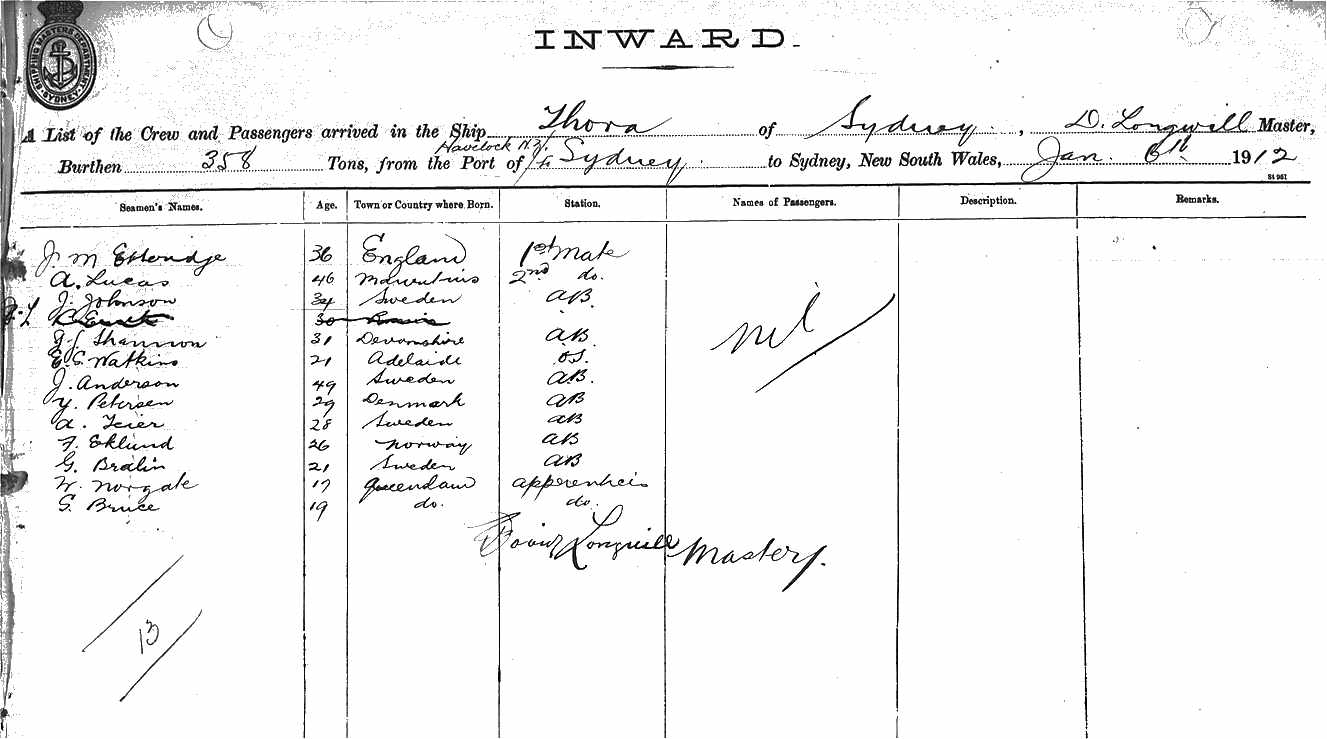 SHIPPING MASTERS DEPARTMENT
SYDNEY
INWARD.
A List of the Crew and Passengers arrived in the Ship Thora of Sydney, D. Longwill Master,
Havelock N.Z.
Burthen 358 Tons, from the Port of to Sydney to Sydney, New South Wales, Jan. 6th 1912
St 961
Seamen's Names. Age. Town or Country where Born. Station. Names of Passengers. Description. Remarks.
J. M 36 England 1st Mate
A. Lucas 46 2nd do.
J. Johnson 34 Sweden AB
30
Shannon 31 Devonshire AB
nil
E. C. Watkins 21 Adelaide OS.
J. Anderson 49 Sweden AB.
Y. Petersen 29 Denmark AB
A. Feier 28 Sweden AB
F. Eklund 26 Norway AB
G. Bralin 21 Sweden AB
W. Norgate 17
S. Bruce 19 do. do.
David Longwill Master
13